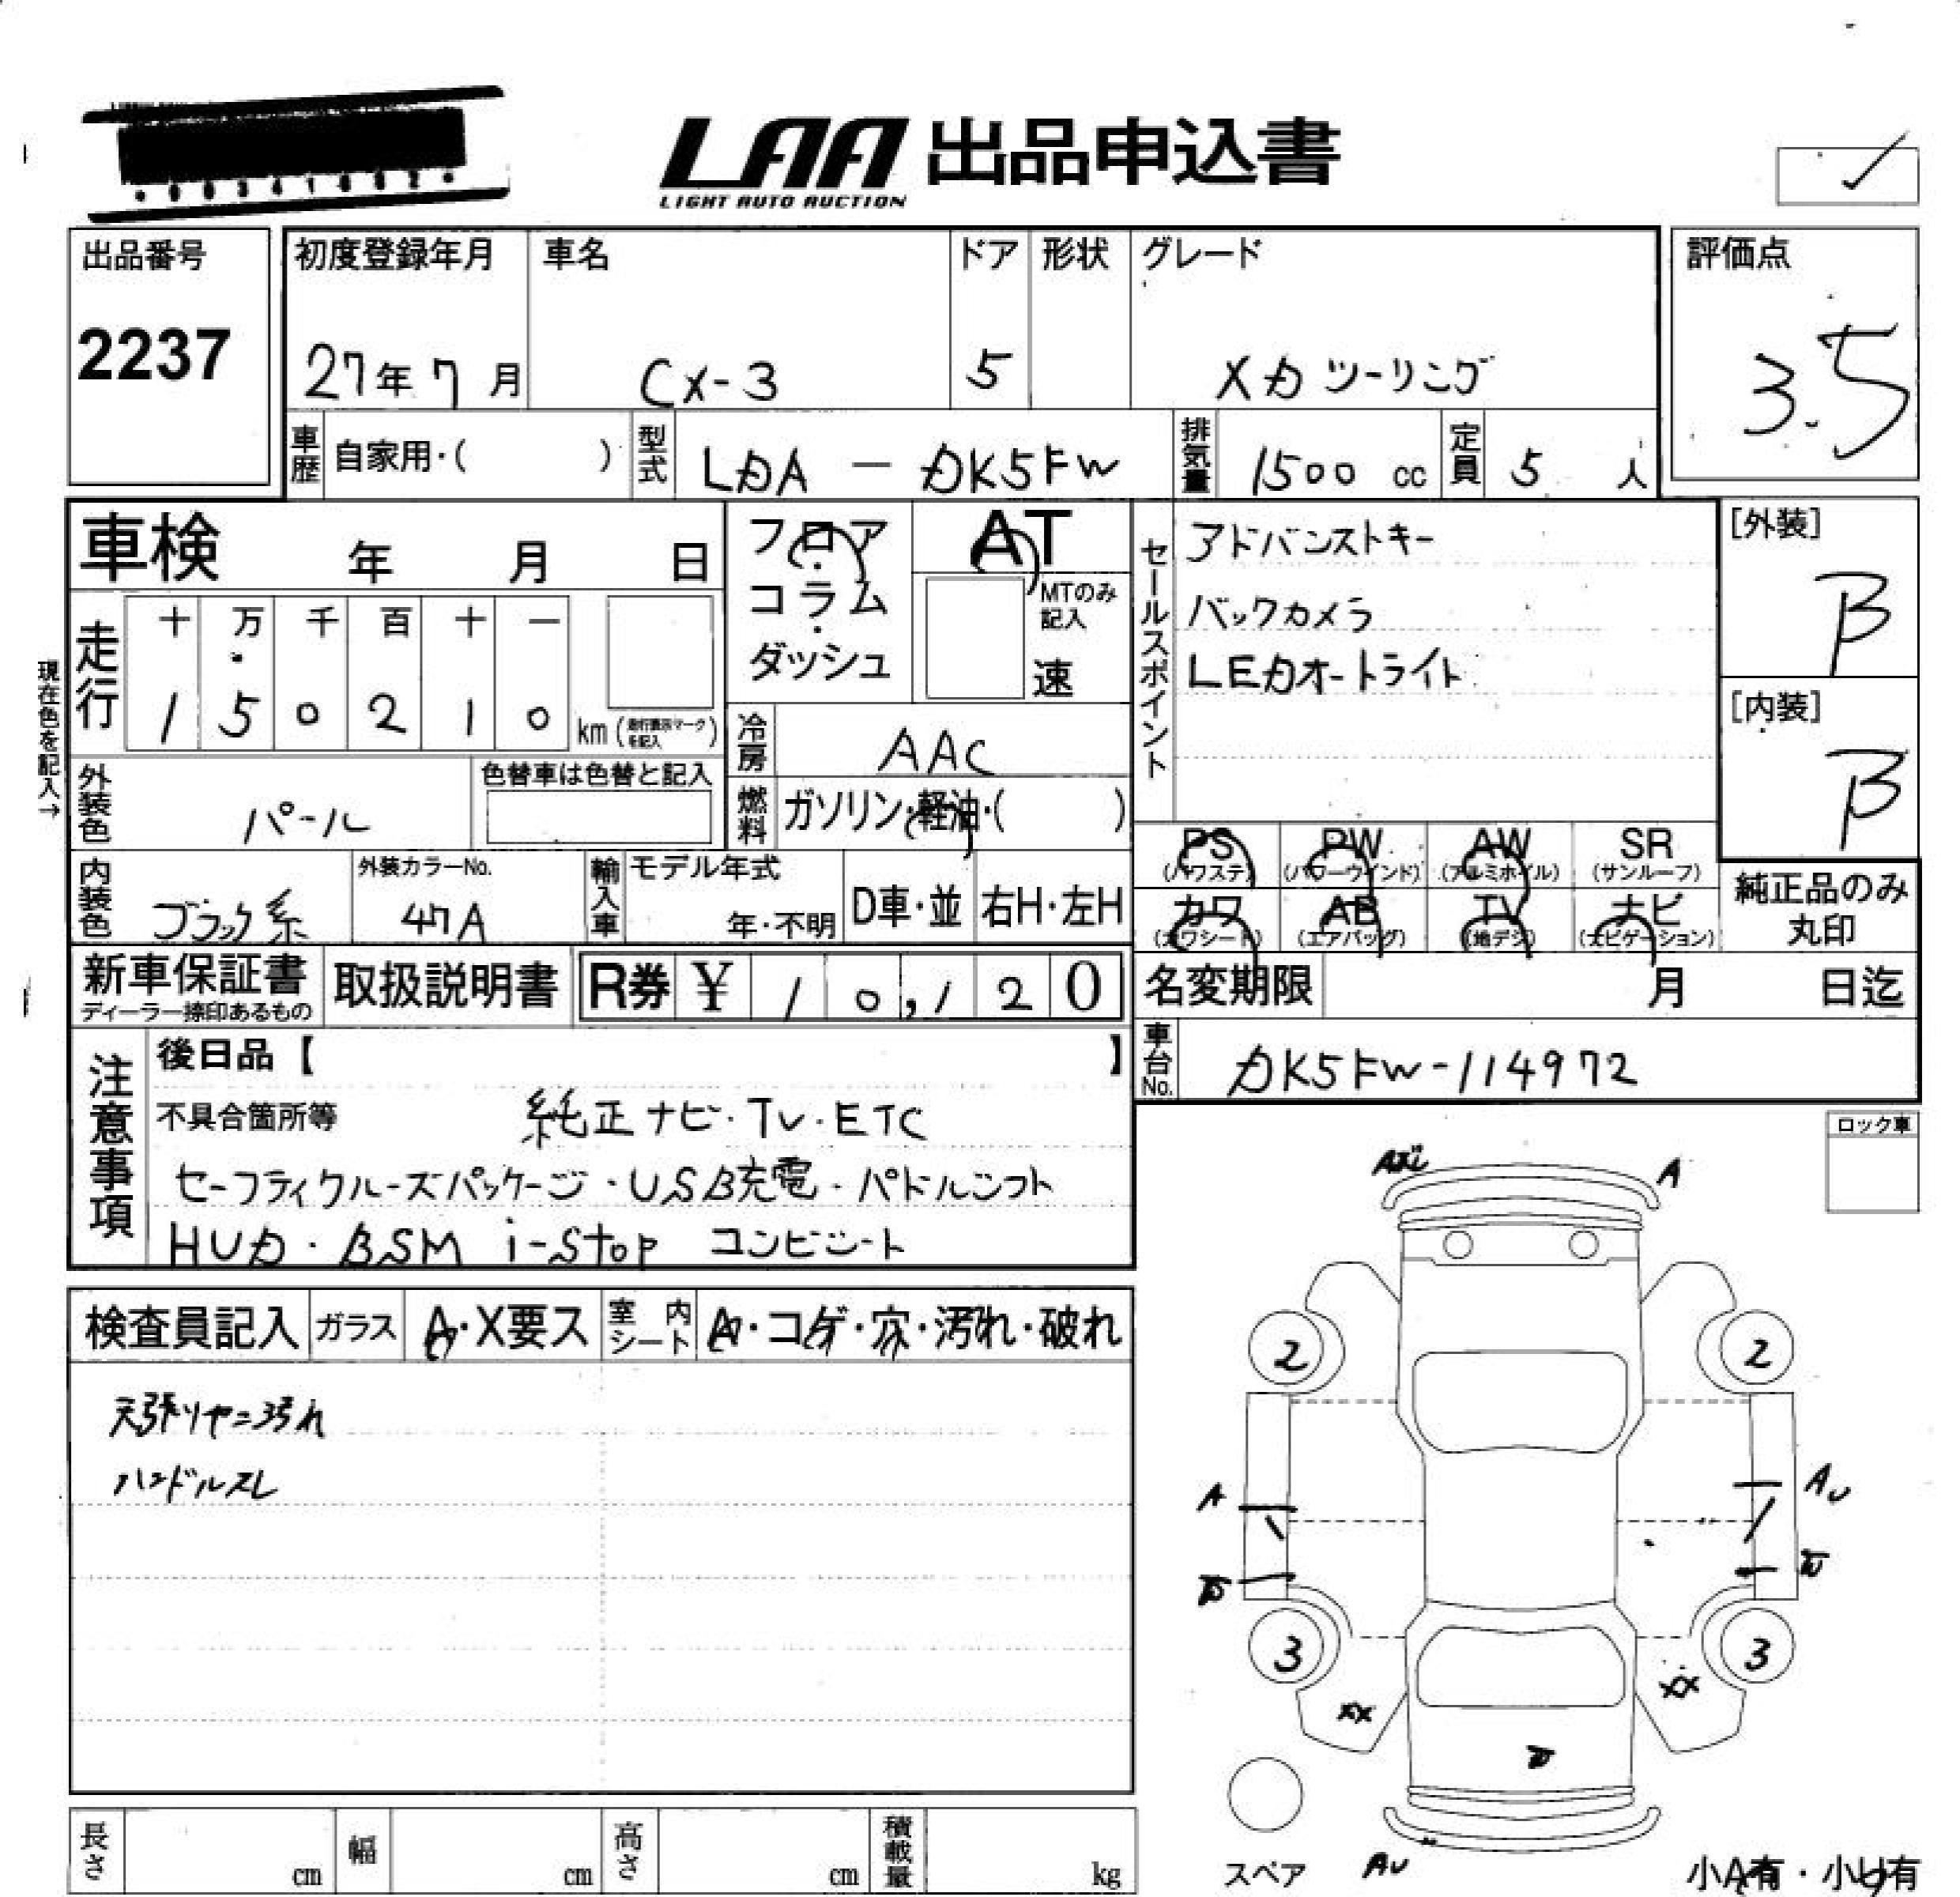 LAA 出品申込書
LIGHT AUTO AUCTION
出品番号
2237
初度登録年月
27年 7月
車名
CX-3
ドア
5
形状
グレード
XD ツーリング
評価点
3.5
車歴 自家用・( )
型式 LDA - DK5FW
排気量 1500 cc
定員 5 人
車検 年 月 日
フロア
コラム
ダッシュ
AT
MTのみ記入
速
セールスポイント
アドバンストキー
バックカメラ
LEDオートライト
[外装]
B
[内装]
B
現在色を記入→
走行
十 万 千 百 十 一
1 5 0 2 1 0 km (走行表示マークを記入)
冷房 AAC
外装色 パール
色替車は色替と記入
燃料 ガソリン・軽油・( )
PS (パワステ)
PW (パワーウインド)
AW (アルミホイル)
SR (サンルーフ)
内装色 ブラック系
外装カラーNo.
47A
輸入車 モデル年式
年・不明
D車・並
右H・左H
カワ (カワシート)
AB (エアバッグ)
TV (地デジ)
ナビ (ナビゲーション)
純正品のみ
丸印
新車保証書
ディーラー捺印あるもの
取扱説明書
R券 ¥ 10,120
名変期限 月 日迄
車台No. DK5FW-114972
注意事項
後日品【 】
不具合箇所等 純正ナビ・TV・ETC
セーフティクルーズパッケージ・USB充電・パドルシフト
HUD・BSM i-stop コンビシート
ロック車
検査員記入
ガラス A・X要ス
室内シート A・コゲ・穴・汚れ・破れ
天張りヤニ汚れ
ハンドルスレ
A
2 2
A
AU
3 3
XX XX
スペア
AU
小A有・小U有
長さ cm
幅 cm
高さ cm
積載量 kg